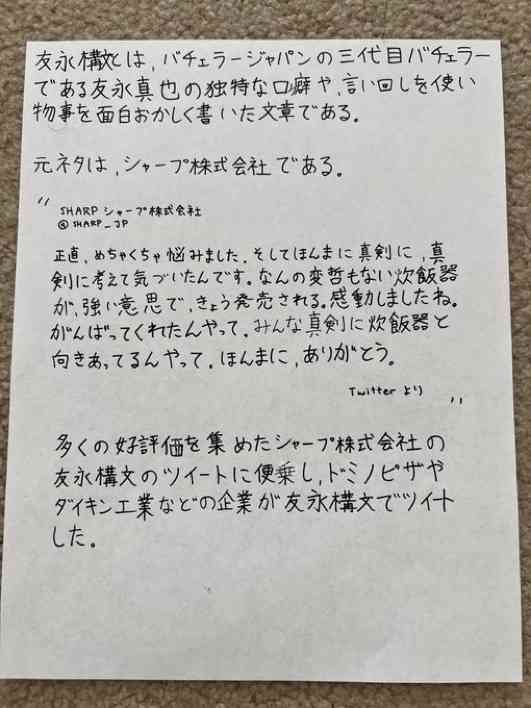 友永構文とは,バチェラージャパンの三代目バチェラー
である友永真也の独特な口癖や,言い回しを使い
物事を面白おかしく書いた文章である。
元ネタは,シャープ株式会社である。
"
SHARP シャープ株式会社
@SHARP_JP
正直,めちゃくちゃ悩みました。そしてほんまに真剣に,真
剣に考えて気づいたんです。なんの変哲もない炊飯器
が,強い意思で,きょう発売される。感動しましたね。
がんばってくれたんやって。みんな真剣に炊飯器と
向きあってるんやって。ほんまに,ありがとう。
Twitterより
"
多くの好評価を集めたシャープ株式会社の
友永構文のツイートに便乗し,ドミノピザや
ダイキン工業などの企業が友永構文でツイート
した。